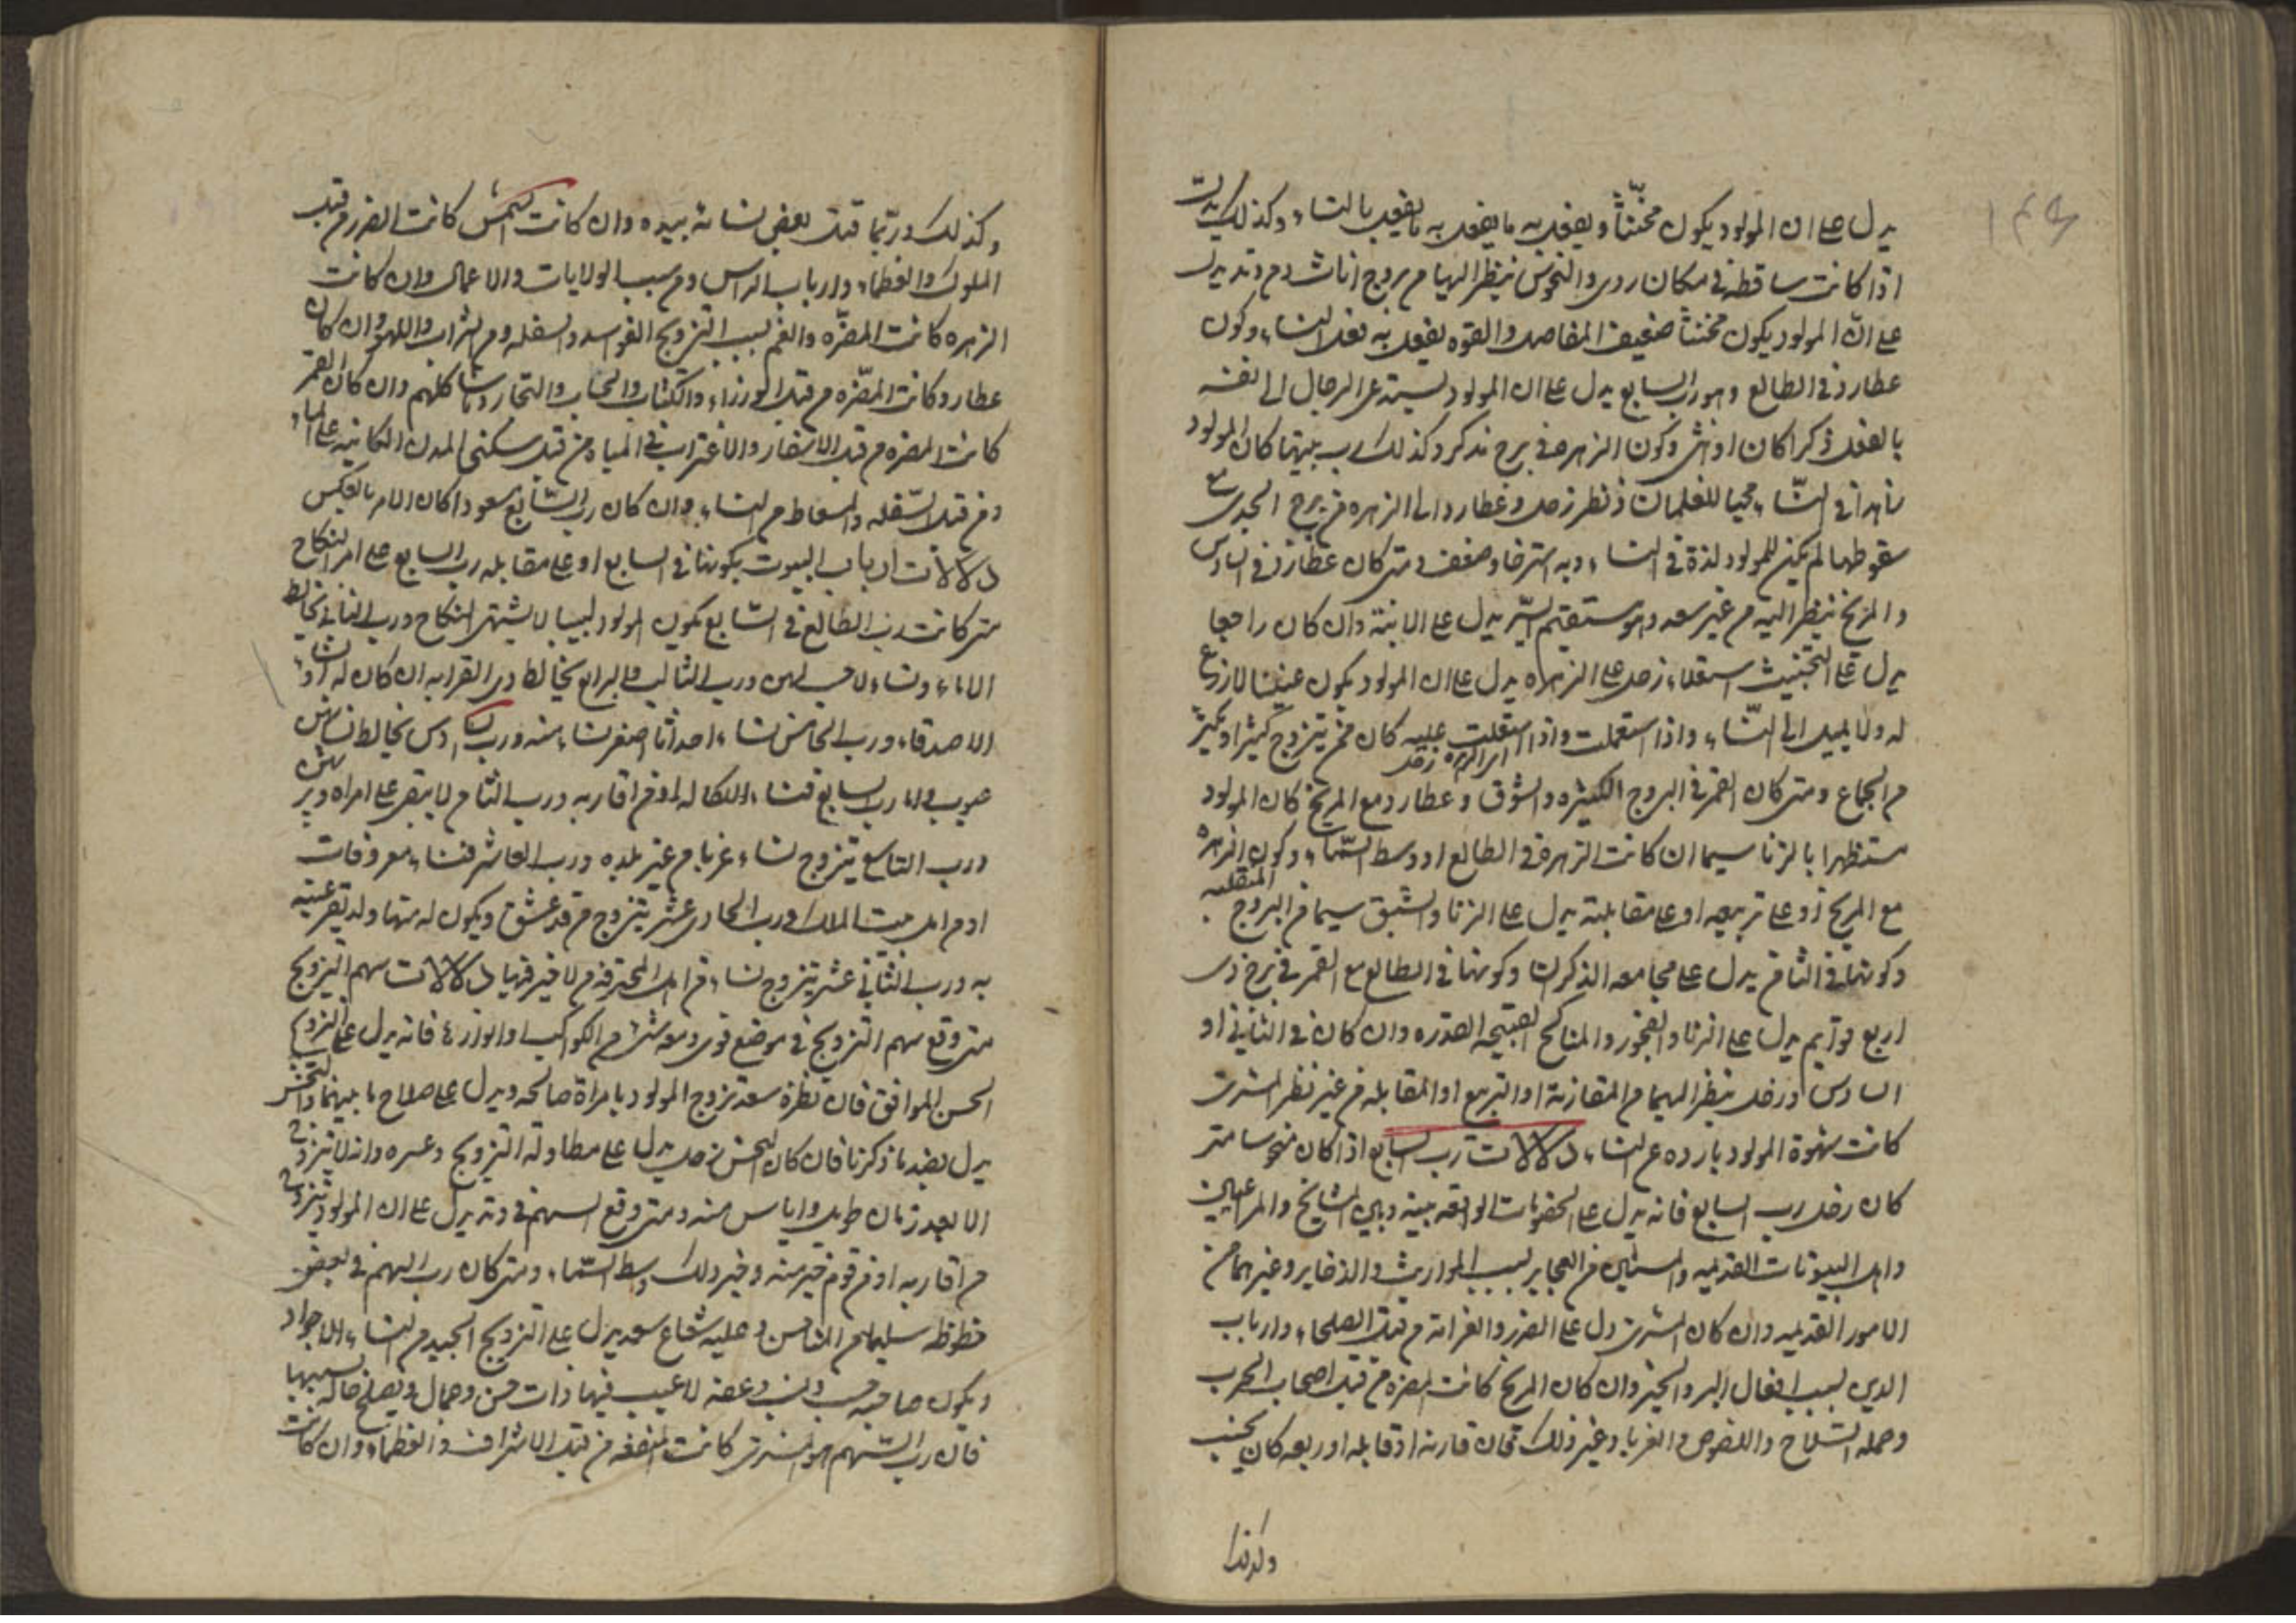 ١٤٩
يدل على ان المولود يكون مخنثاً ويفعل به ما يفعل به ما يفعل بالنساء وكذلك يدل
اذا كانت ساقطة في مكان ردى والنحوس ينظر اليها من بروج اناث ومن وتد يدل
على انّ المولود يكون مخنثاً ضعيف المفاصل والقوه يفعل به فعل النساء وكون
عطارد في الطالع وهو رب السابع يدل على ان المولود يستدعى الرجال الى نفسه
بالفعل ذكرا كان او انثى وكون الزهره في برج مذكر وكذلك رب بيتها كان المولود
زاهدا في النساء محبا للغلمان ونظر زحل وعطارد الى الزهره في برج الجدى مع
سقوطها لم يكن للمولود لذة في النساء وبه استرخا وضعف ومتى كان عطارد في السادس
والمريخ ينظر اليه من غير سعد وهو مستقيم السير يدل على الابنة وان كان راجعا
يدل على التخنيث استعلاء زحل على الزهراه يدل على ان المولود يكون عنينا لا زرع
له ولا يميل الى النساء واذا استعملت واذا استعلت عليه كان ممن يتزوج كثيرا ويكثر
اى الزهره زحل
من الجماع ومتى كان القمر في البروج الكثيره الشوق وعطارد مع المريخ كان المولود
مستظهرا بالزنا سيما ان كانت الزهره في الطالع او وسط السماء وكون الزهره
مع المريخ او على تربيعه او على مقابلته يدل على الزنا والشبق سيما في البروج المنقلبه
وكونهما في الثامن يدل على مجامعه الذكران وكونها في الطالع مع القمر في برج ذى
اربع قوايم يدل على الزنا والفجور والمناكح القبيحه القذره وان كان في الثاني او
السادس وزحل ينظر اليهما من المقارنة او التربيع او المقابله من غير نظر المشترى
كانت شهوة المولود بارده عن النساء دلالات رب السابع اذا كان منحوسا متى
كان زحل رب السابع فانه يدل على الخصومات الواقعه بينه وبين المشايخ والمراعيين
واهل البيوتات القديمه والمسنين من العجايز بسبب المواريث والذخاير وغيرهما من
الامور القديمه وان كان المشترى دل على الضرر والغرامة من قبل الصلحاء وارباب
الدين بسبب افعال البر والخير وان كان المريخ كانت المضره من قبل اصحاب الحرب
وحمله السلاح واللصوص والغربا وغير ذلك فان قارنه او قابله او ربعه كان بحسب
وكذلك
وكذلك وربّما قتل بعض نسائه بيده وان كانت الشمس كانت الضرر من قبل
الملوك والعظماء وارباب الراس ومن سبب الولايات والاعمال وان كانت
الزهره كانت المضرّه والغم بسبب التزويج الفواسد والسفله ومن الشراب واللهو وان كان
عطارد كانت المضرّه من قبل الوزراء والكتاب والحساب والتجار وما شاكلهم وان كان القمر
كانت المضره من قبل الاسفار والاغتراب في المياه ومن قبل سكنى المدن الكاينه على الماء
ومن قبل السّفله والسقاط من النساء وان كان رب السّابع مسعودا كان الامر بالعكس
دلالات ارباب البيوت بكونها في السابع او على مقابله رب السابع على امر النكاح
متى كانت رب الطالع في السّابع يكون المولود لبيبا لا يشتهى النكاح ورب الثاني يخالط
الاماء ونساء لا حسب لهن ورب الثالث والرابع يخالط ذوى القرابه ان كان له او نساء
الاصدقاء ورب الخامس نساء احداثا اصغر سنا منه ورب السادس يخالط نساء بهن
عيوب واما رب السابع فنساء اشكالا له او من اقاربه ورب الثامن لا يبقى على امراه ويرثهن
ورب التاسع يتزوج نساء غربا من غير بلده ورب العاشر فنساء معروفات
او من اهل بيت الملك ورب الحادى عشر يتزوج من قد عشق ويكون له منها ولد تقر عينه
به ورب الثاني عشر يتزوج نساء من اهل الحرفه من لا خير فيها دلالات سهم التزويج
متى وقع سهم التزويج في موضع قوى ومعه شئ من الكواكب او انواره فانه يدل على التزويج
الحسن الموافق فان نظره سعد تزوج المولود بامراة صالحه ويدل على صلاح ما بينهما والنحس
يدل بضد ما ذكرنا فان كان النحس زحل يدل على مطاولة التزويج وعسره وانه لا يتزوج
الا بعد زمان طويل واياس منه ومتى وقع السهم في وتد يدل على ان المولود يتزوج
من اقاربه او من قوم خير منه وخير ذلك وسط السّماء ومتى كان رب السهم في بعض
حظوظه سليما من المناحس وعليه شعاع سعد يدل على التزويج الجيد من النساء الاجواد
ويكون صاحبه حسب ونسب وعفه لا عيب فيها ذات حسن وجمال ويصلح حاله بسببها
فان رب السّهم هو المشترى كانت المنفعه من قبل الاشراف والعظماء وان كانت